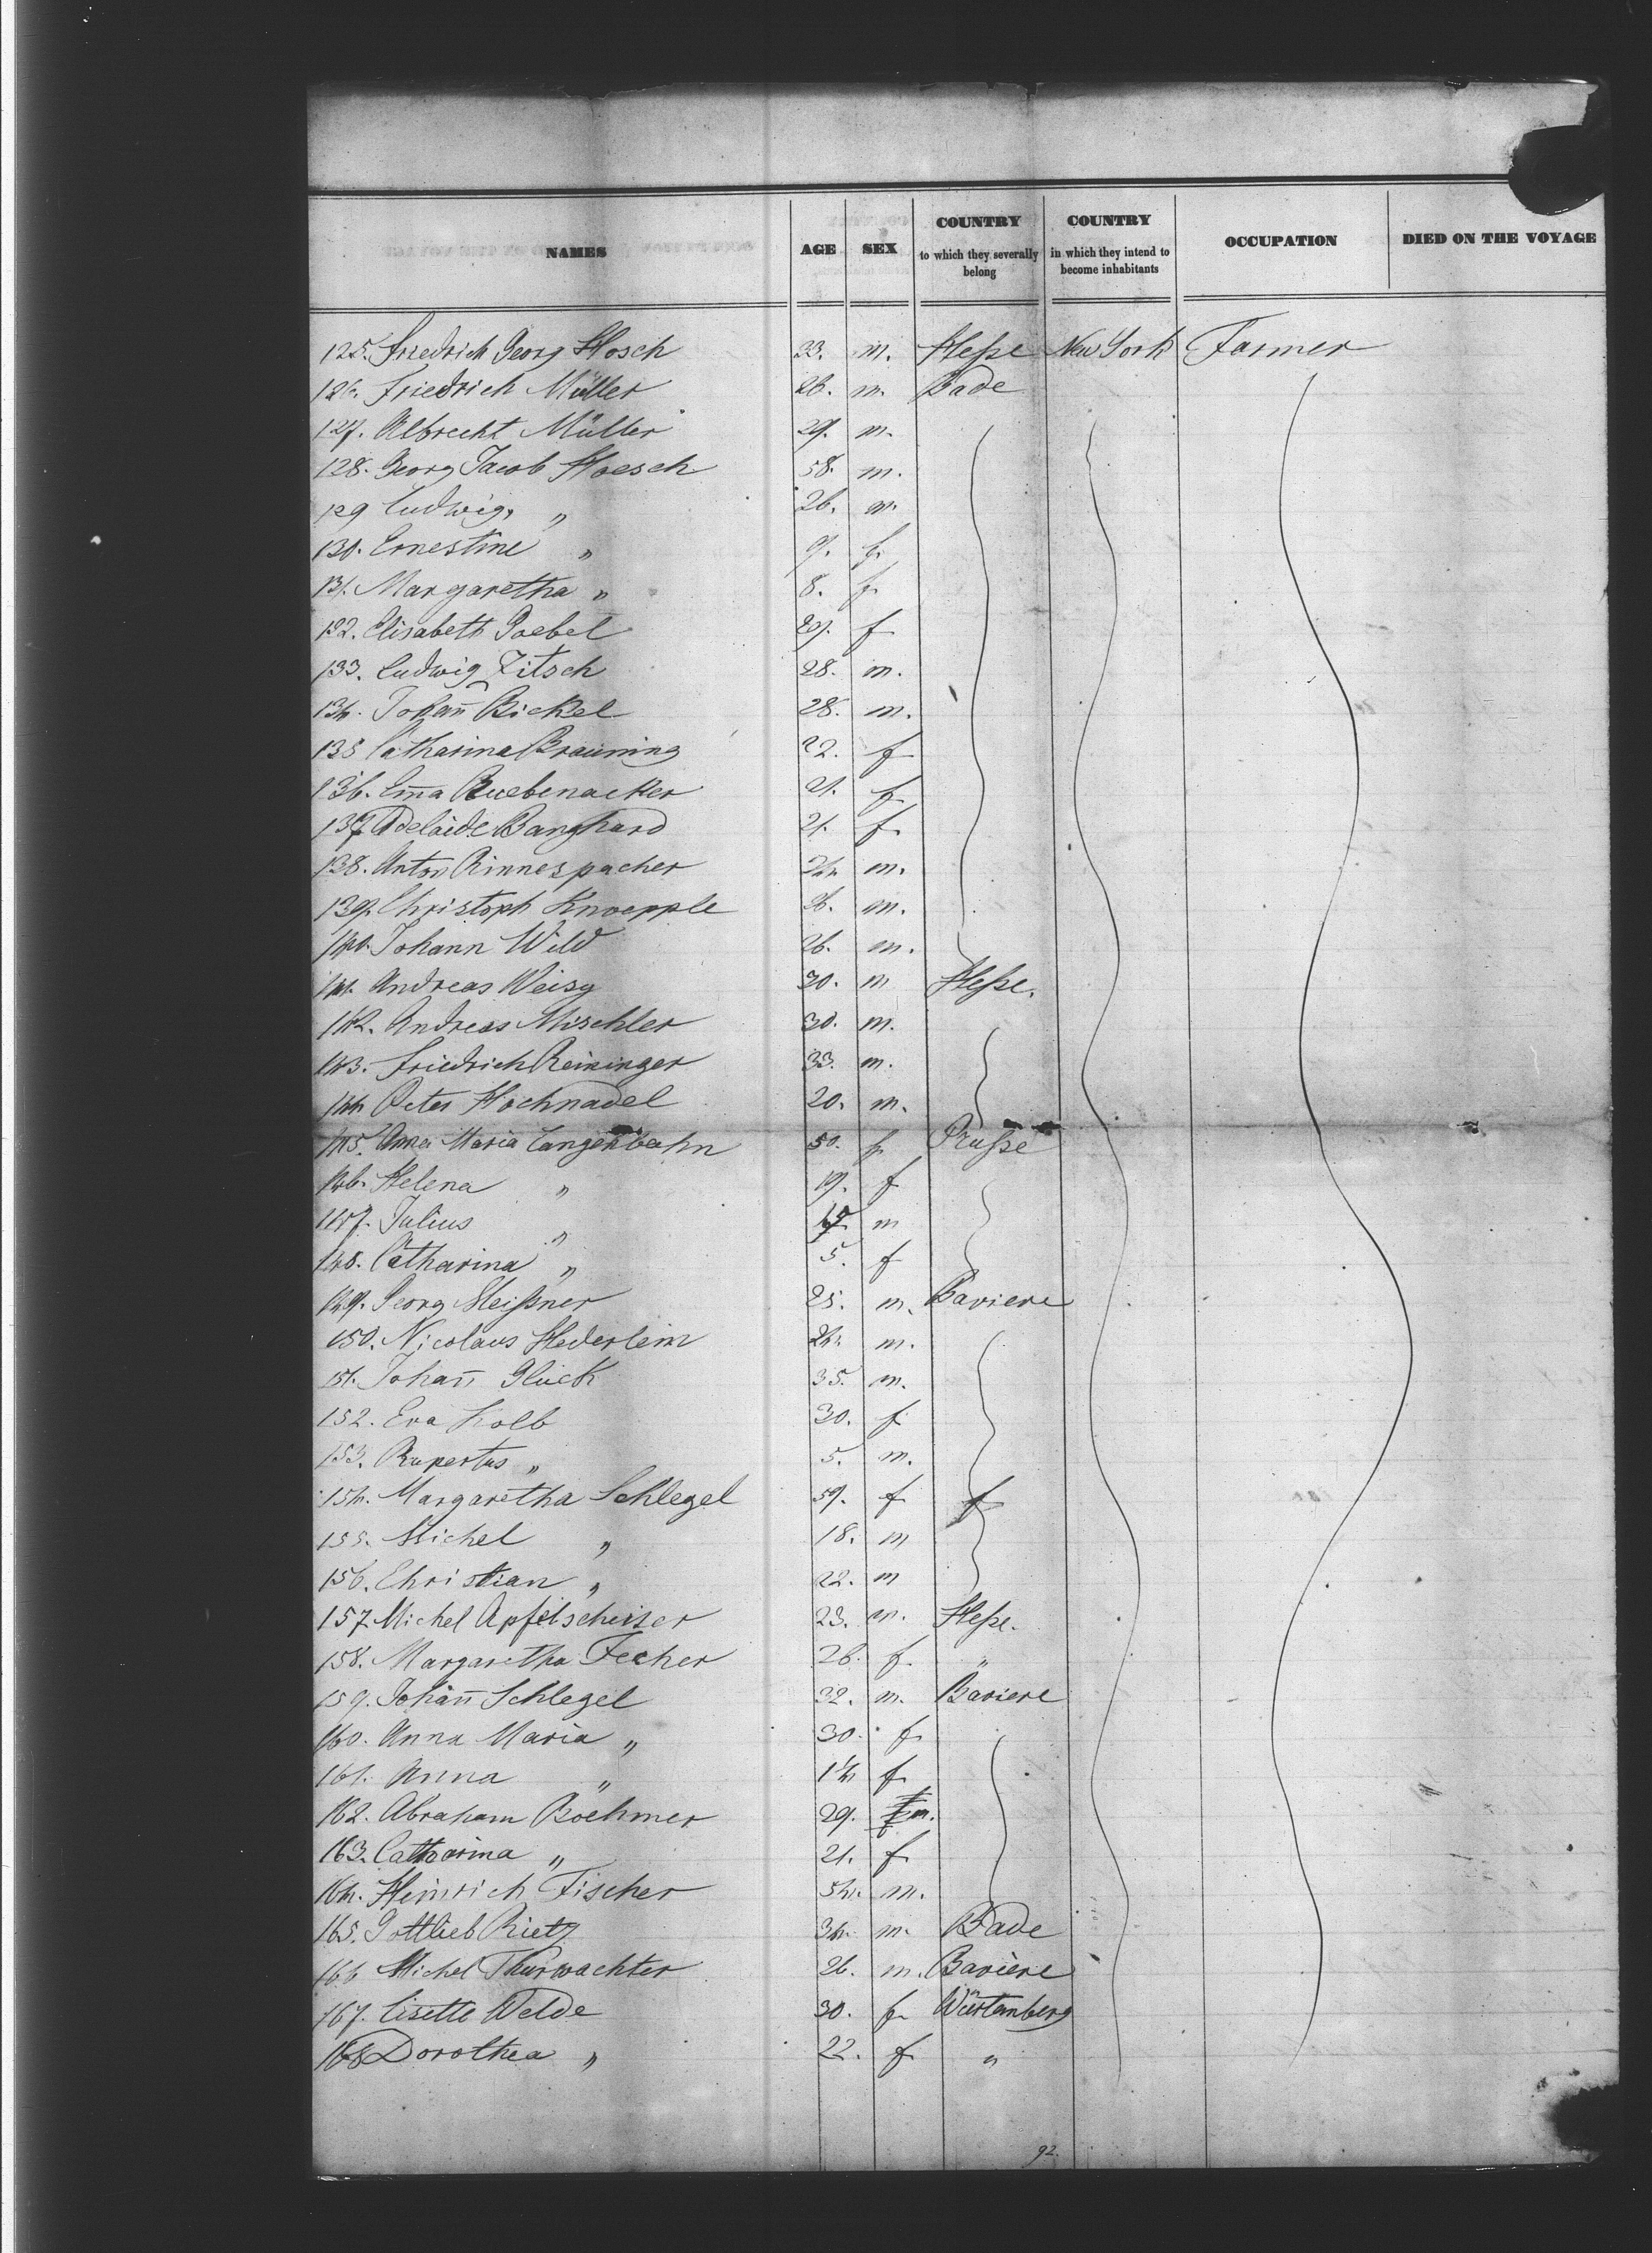 NAMES AGE SEX COUNTRY to which they severally belong COUNTRY in which they intend to become inhabitants OCCUPATION DIED ON THE VOYAGE
125. Friedrich Georg Hosch 33. m. Heſse New York Farmer
126. Friedrich Müller 26. m. Bade
127. Albrecht Müller 29. m.
128. Georg Jacob Hoesch 58. m.
129 Ludwig, " 26. m.
130. Ernestine " 9. f.
131. Margaretha " 8. f.
132. Elisabeth Goebel 29. f
133. Ludwig Zitsch 28. m.
134. Johañ Bickel 28. m.
135 Catharina Brauning 22. f
136. Em̄a Ruebenacker 21. f
137 Adelaide Banghard 21. f.
138. Anton Rinnespacher 24. m.
139. Christoph Knoepple 26. m.
140. Johann Wild 26. m.
141. Andreas Weisg 30. m Heſse.
142. Andreas Mischler 30. m.
143. Friedrich Reininger 33. m.
144 Peter Hochnadel 20. m.
145. Anna Maria Langenbahn 50. f Pruſse
146. Helena " 19. f
147. Julius " m
148. Catharina " 5. f
149. Georg Meiſsner 25. m. Baviere
150. Nicolaus Hederlein 24. m.
151. Johañ Glück 35. m.
152. Eva Kolb 30. f
153. Rupertus " 5. m.
154. Margaretha Schlegel 59. f
155. Michel " 18. m
156. Christian " 22. m
157 Michel Apfelscheiser 23. m. Heſse.
158. Margaretha Fecher 26. f. "
159. Johañ Schlegel 32. m. Baviere
160. Anna Maria " 30. f
161. Anna " f
162. Abraham Boehmer 29. m.
163. Catharina " 21. f
164. Heinrich Fischer 54. m.
165. Gottlieb Rietz 34. m. Bade
166 Michel Thürwachter 26. m. Bavière
167. Lisette Welde 30. f Würtemberg
168 Dorothea " 22. f "
92.